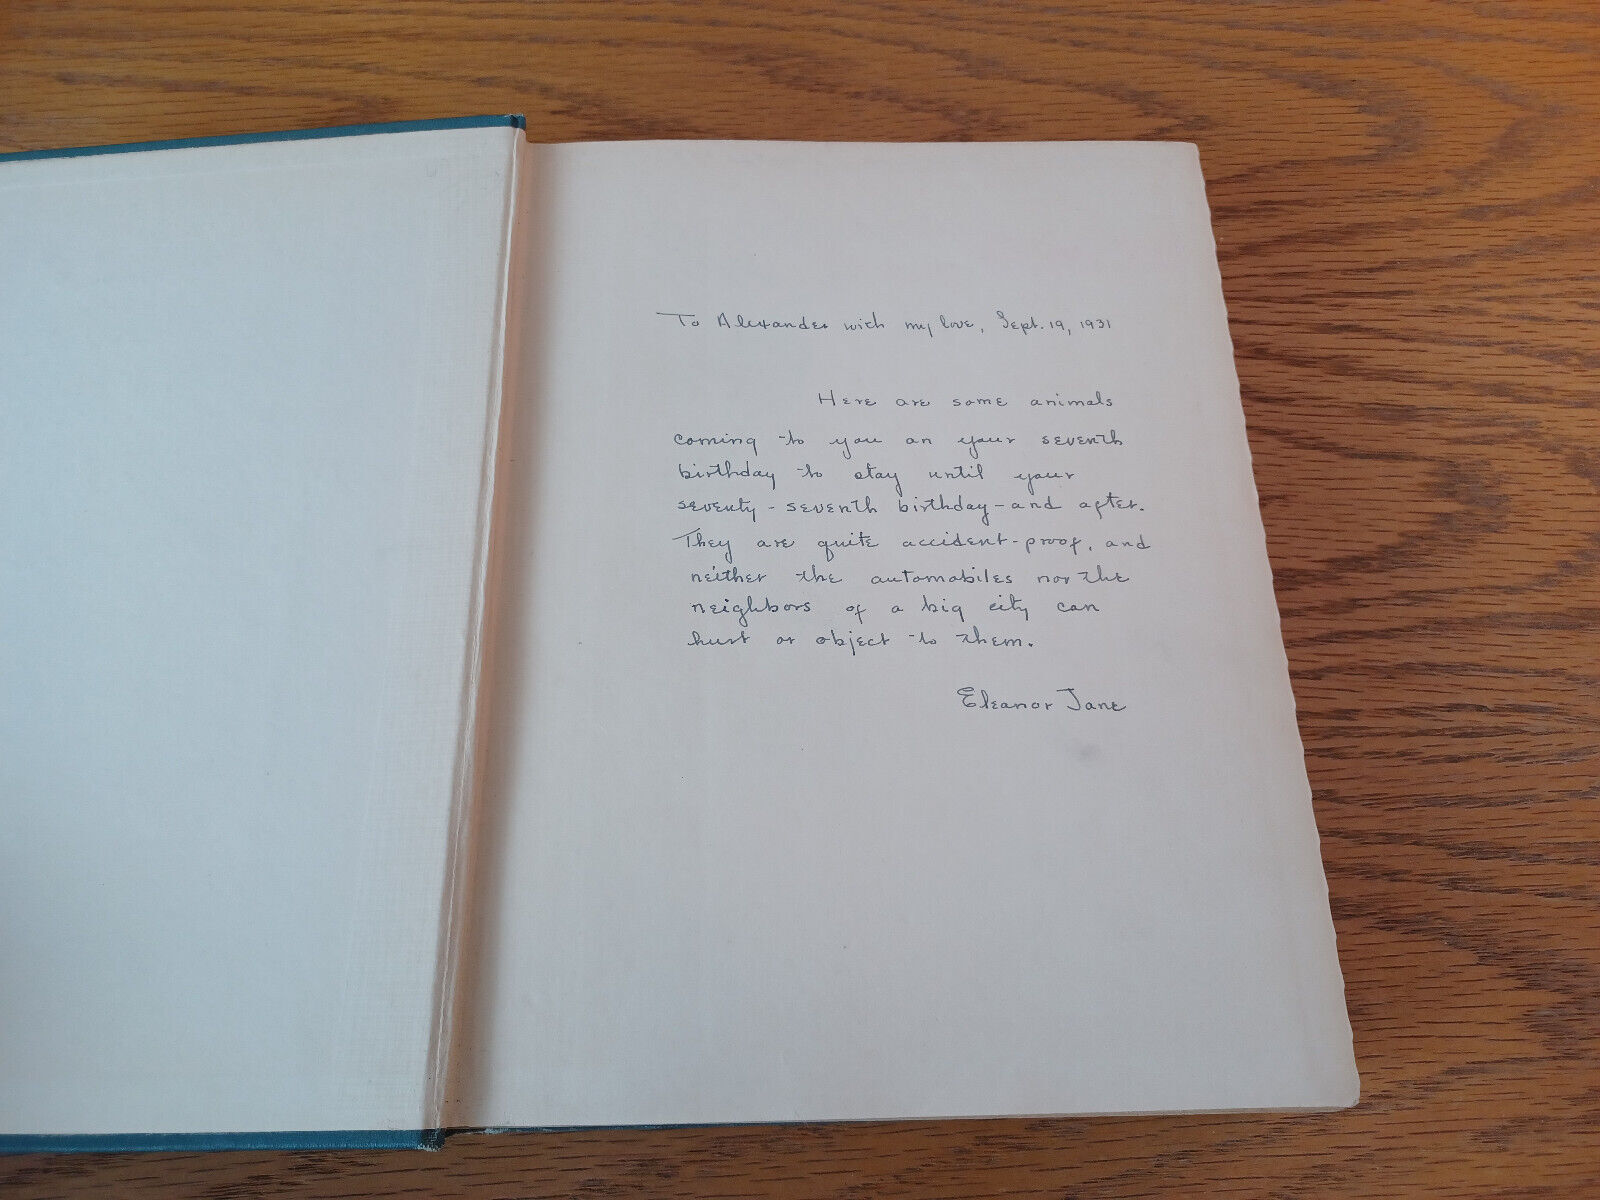 To Alexander with my love, Sept. 19, 1931
Here are some animals
coming to you on your seventh
birthday to stay until your
seventy-seventh birthday - and after.
They are quite accident-proof, and
neither the automobiles nor the
neighbors of a big city can
hurt or object to them.
Eleanor Jane